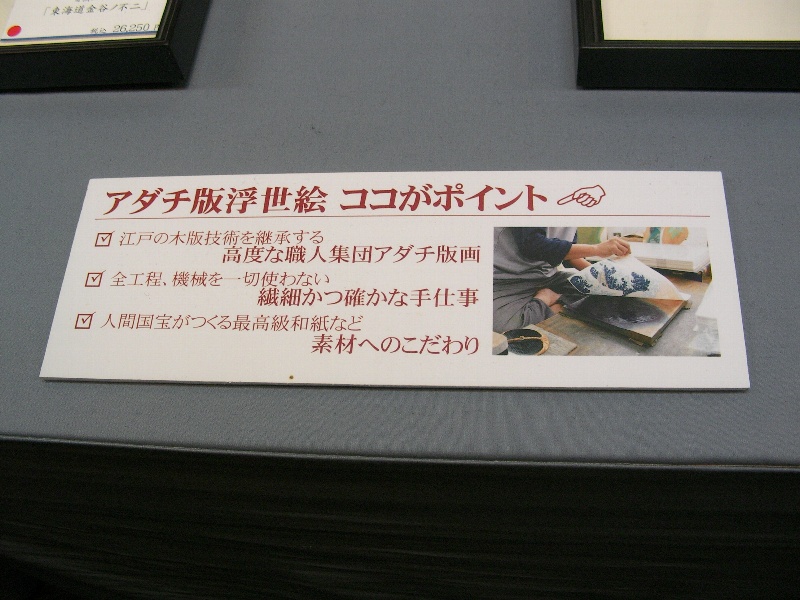 「東海道金谷ノ不二」
税込 26,250
アダチ版浮世絵 ココがポイント
江戸の木版技術を継承する
高度な職人集団アダチ版画
全工程、機械を一切使わない
繊細かつ確かな手仕事
人間国宝がつくる最高級和紙など
素材へのこだわり